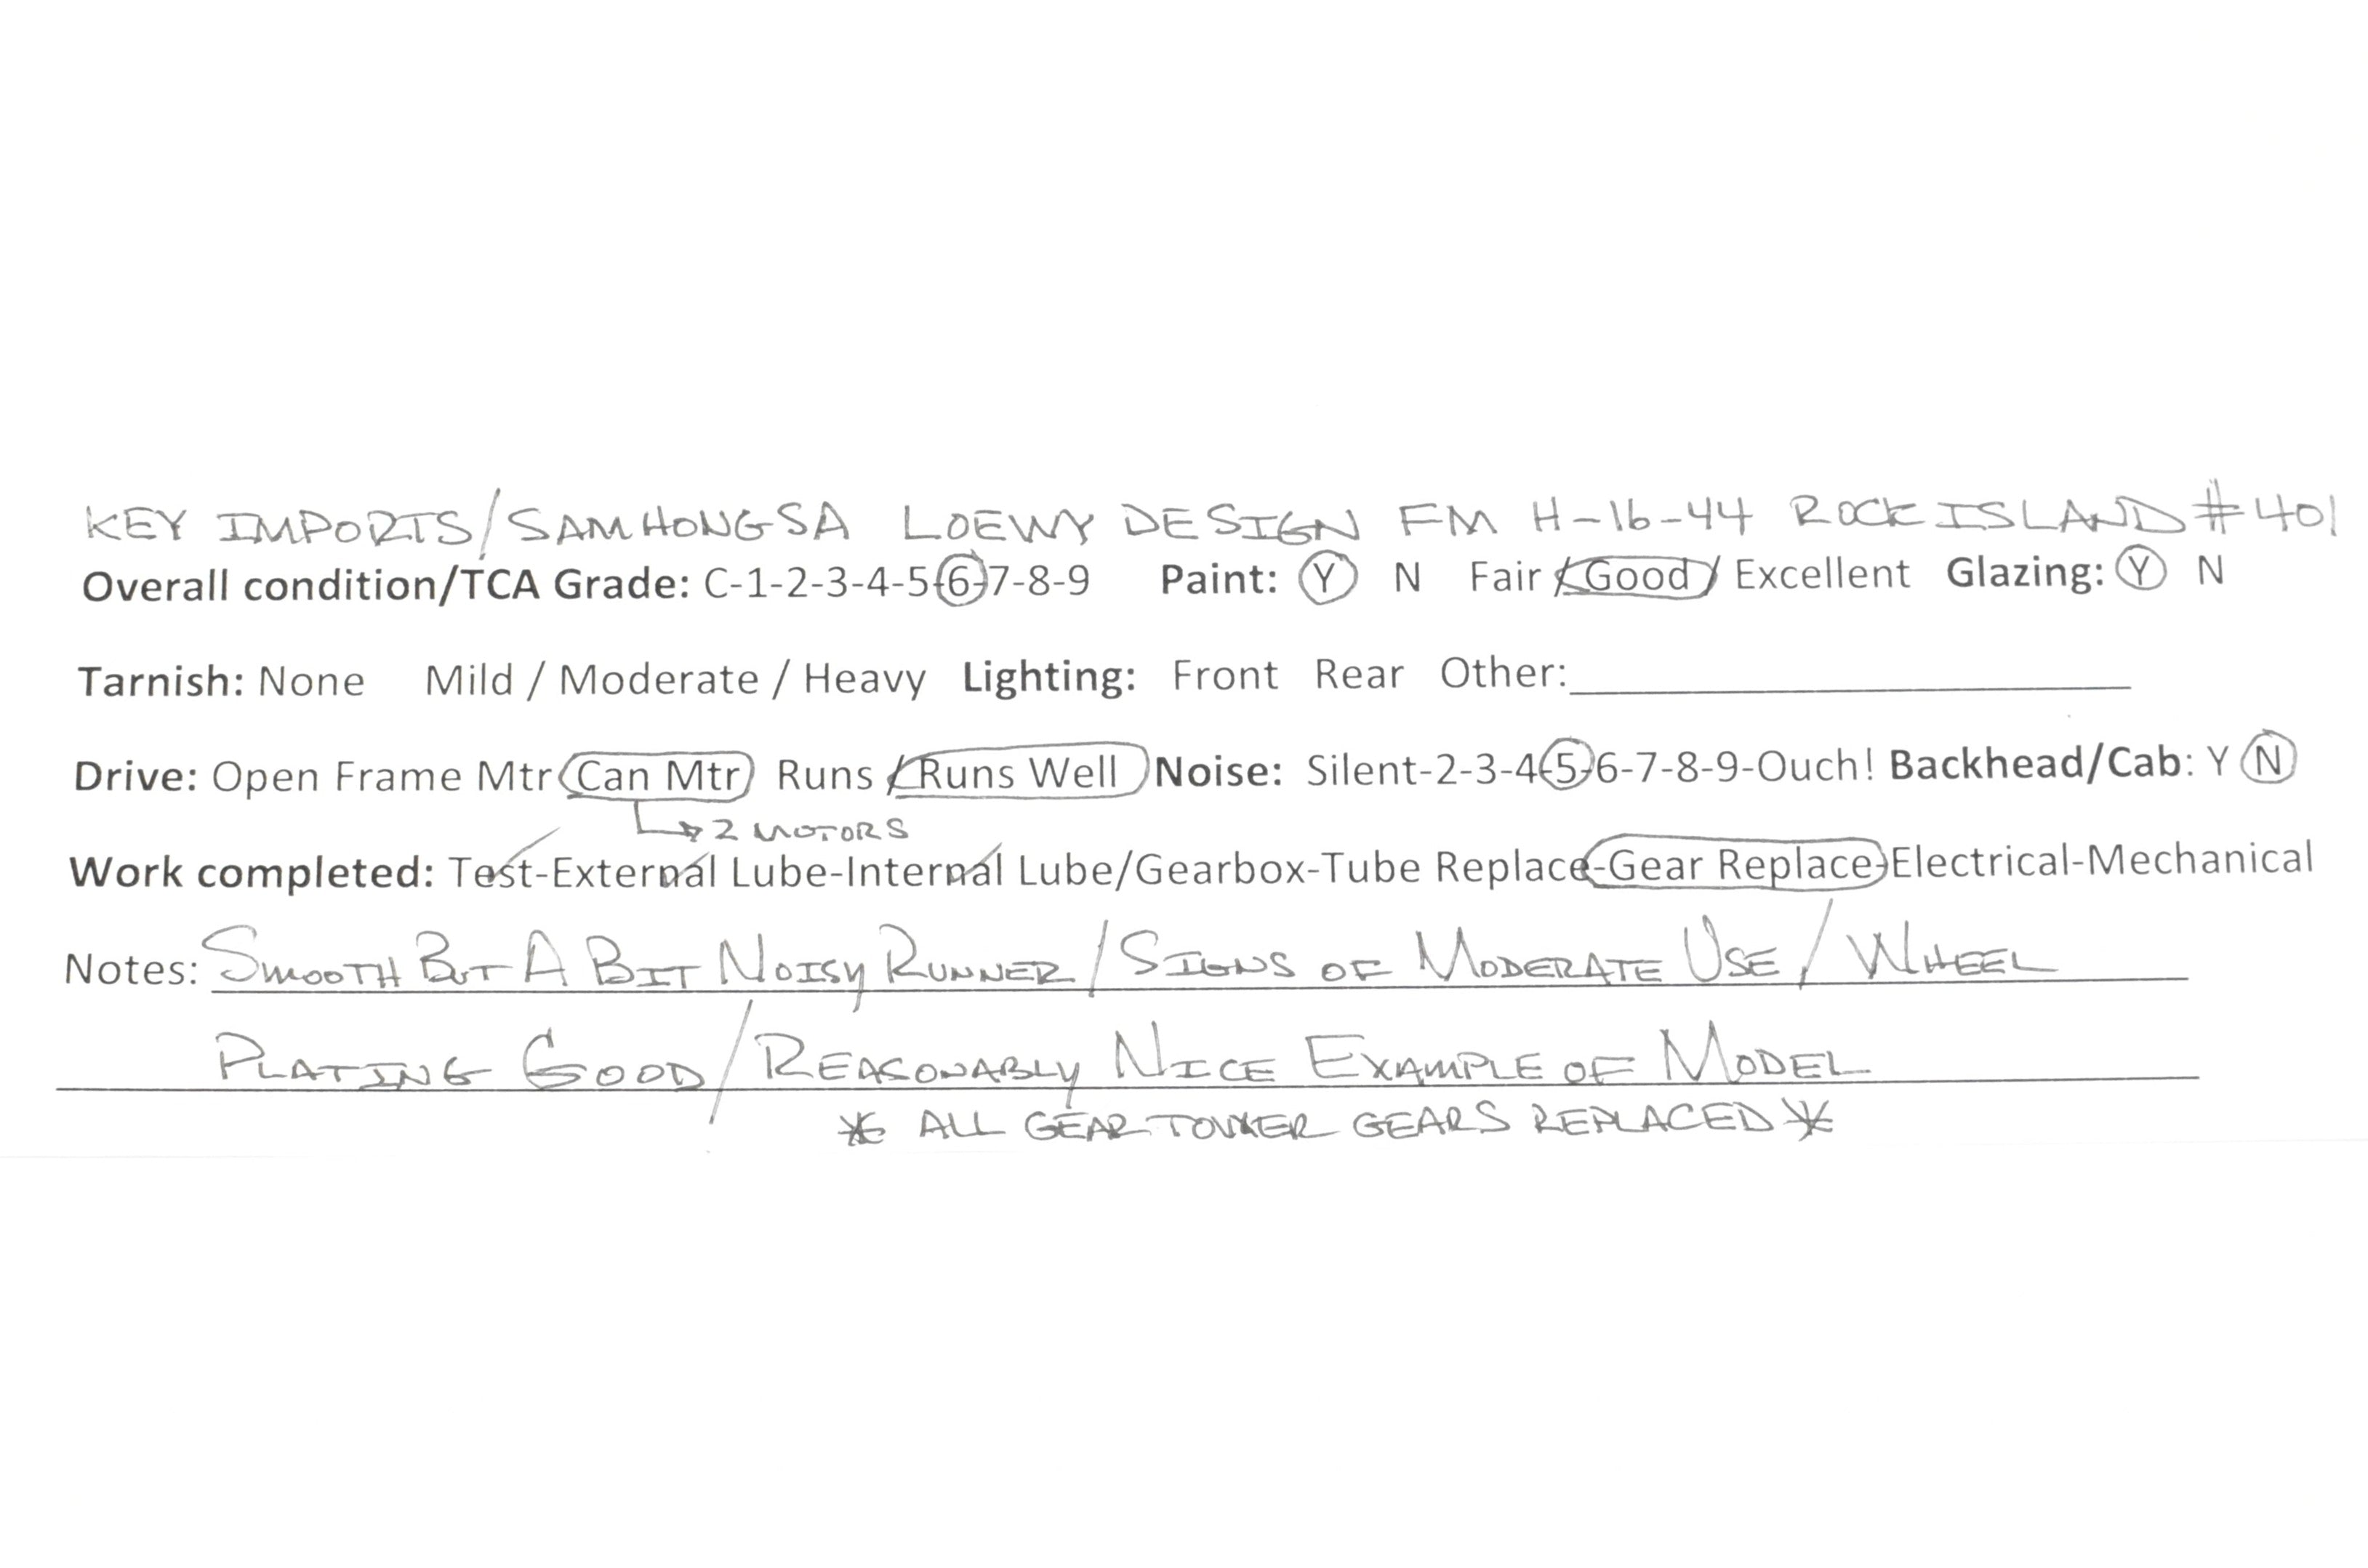 KEY IMPORTS/SAMHONGSA LOEWY DESIGN FM H-16-44 ROCK ISLAND #401
Overall condition/TCA Grade: C-1-2-3-4-5-6-7-8-9 Paint: Y N Fair / Good / Excellent Glazing: Y N
Tarnish: None Mild / Moderate / Heavy Lighting: Front Rear Other:
Drive: Open Frame Mtr Can Mtr Runs / Runs Well Noise: Silent-2-3-4-5-6-7-8-9-Ouch! Backhead/Cab: Y N
2 MOTORS
Work completed: Test-External Lube-Internal Lube/Gearbox-Tube Replace-Gear Replace-Electrical-Mechanical
Notes: SMOOTH BUT A BIT NOISY RUNNER/SIGNS OF MODERATE USE/WHEEL
PLATING GOOD/REASONABLY NICE EXAMPLE OF MODEL
* ALL GEAR TOWER GEARS REPLACED *